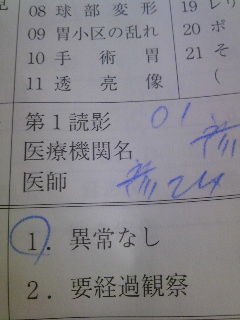 08 球部変形
19 レリ
09 胃小区の乱れ
20 ポ
10 手術胃
21 そ
11 透亮像
(
第1読影
01
医療機関名
医師
1. 異常なし
2. 要経過観察